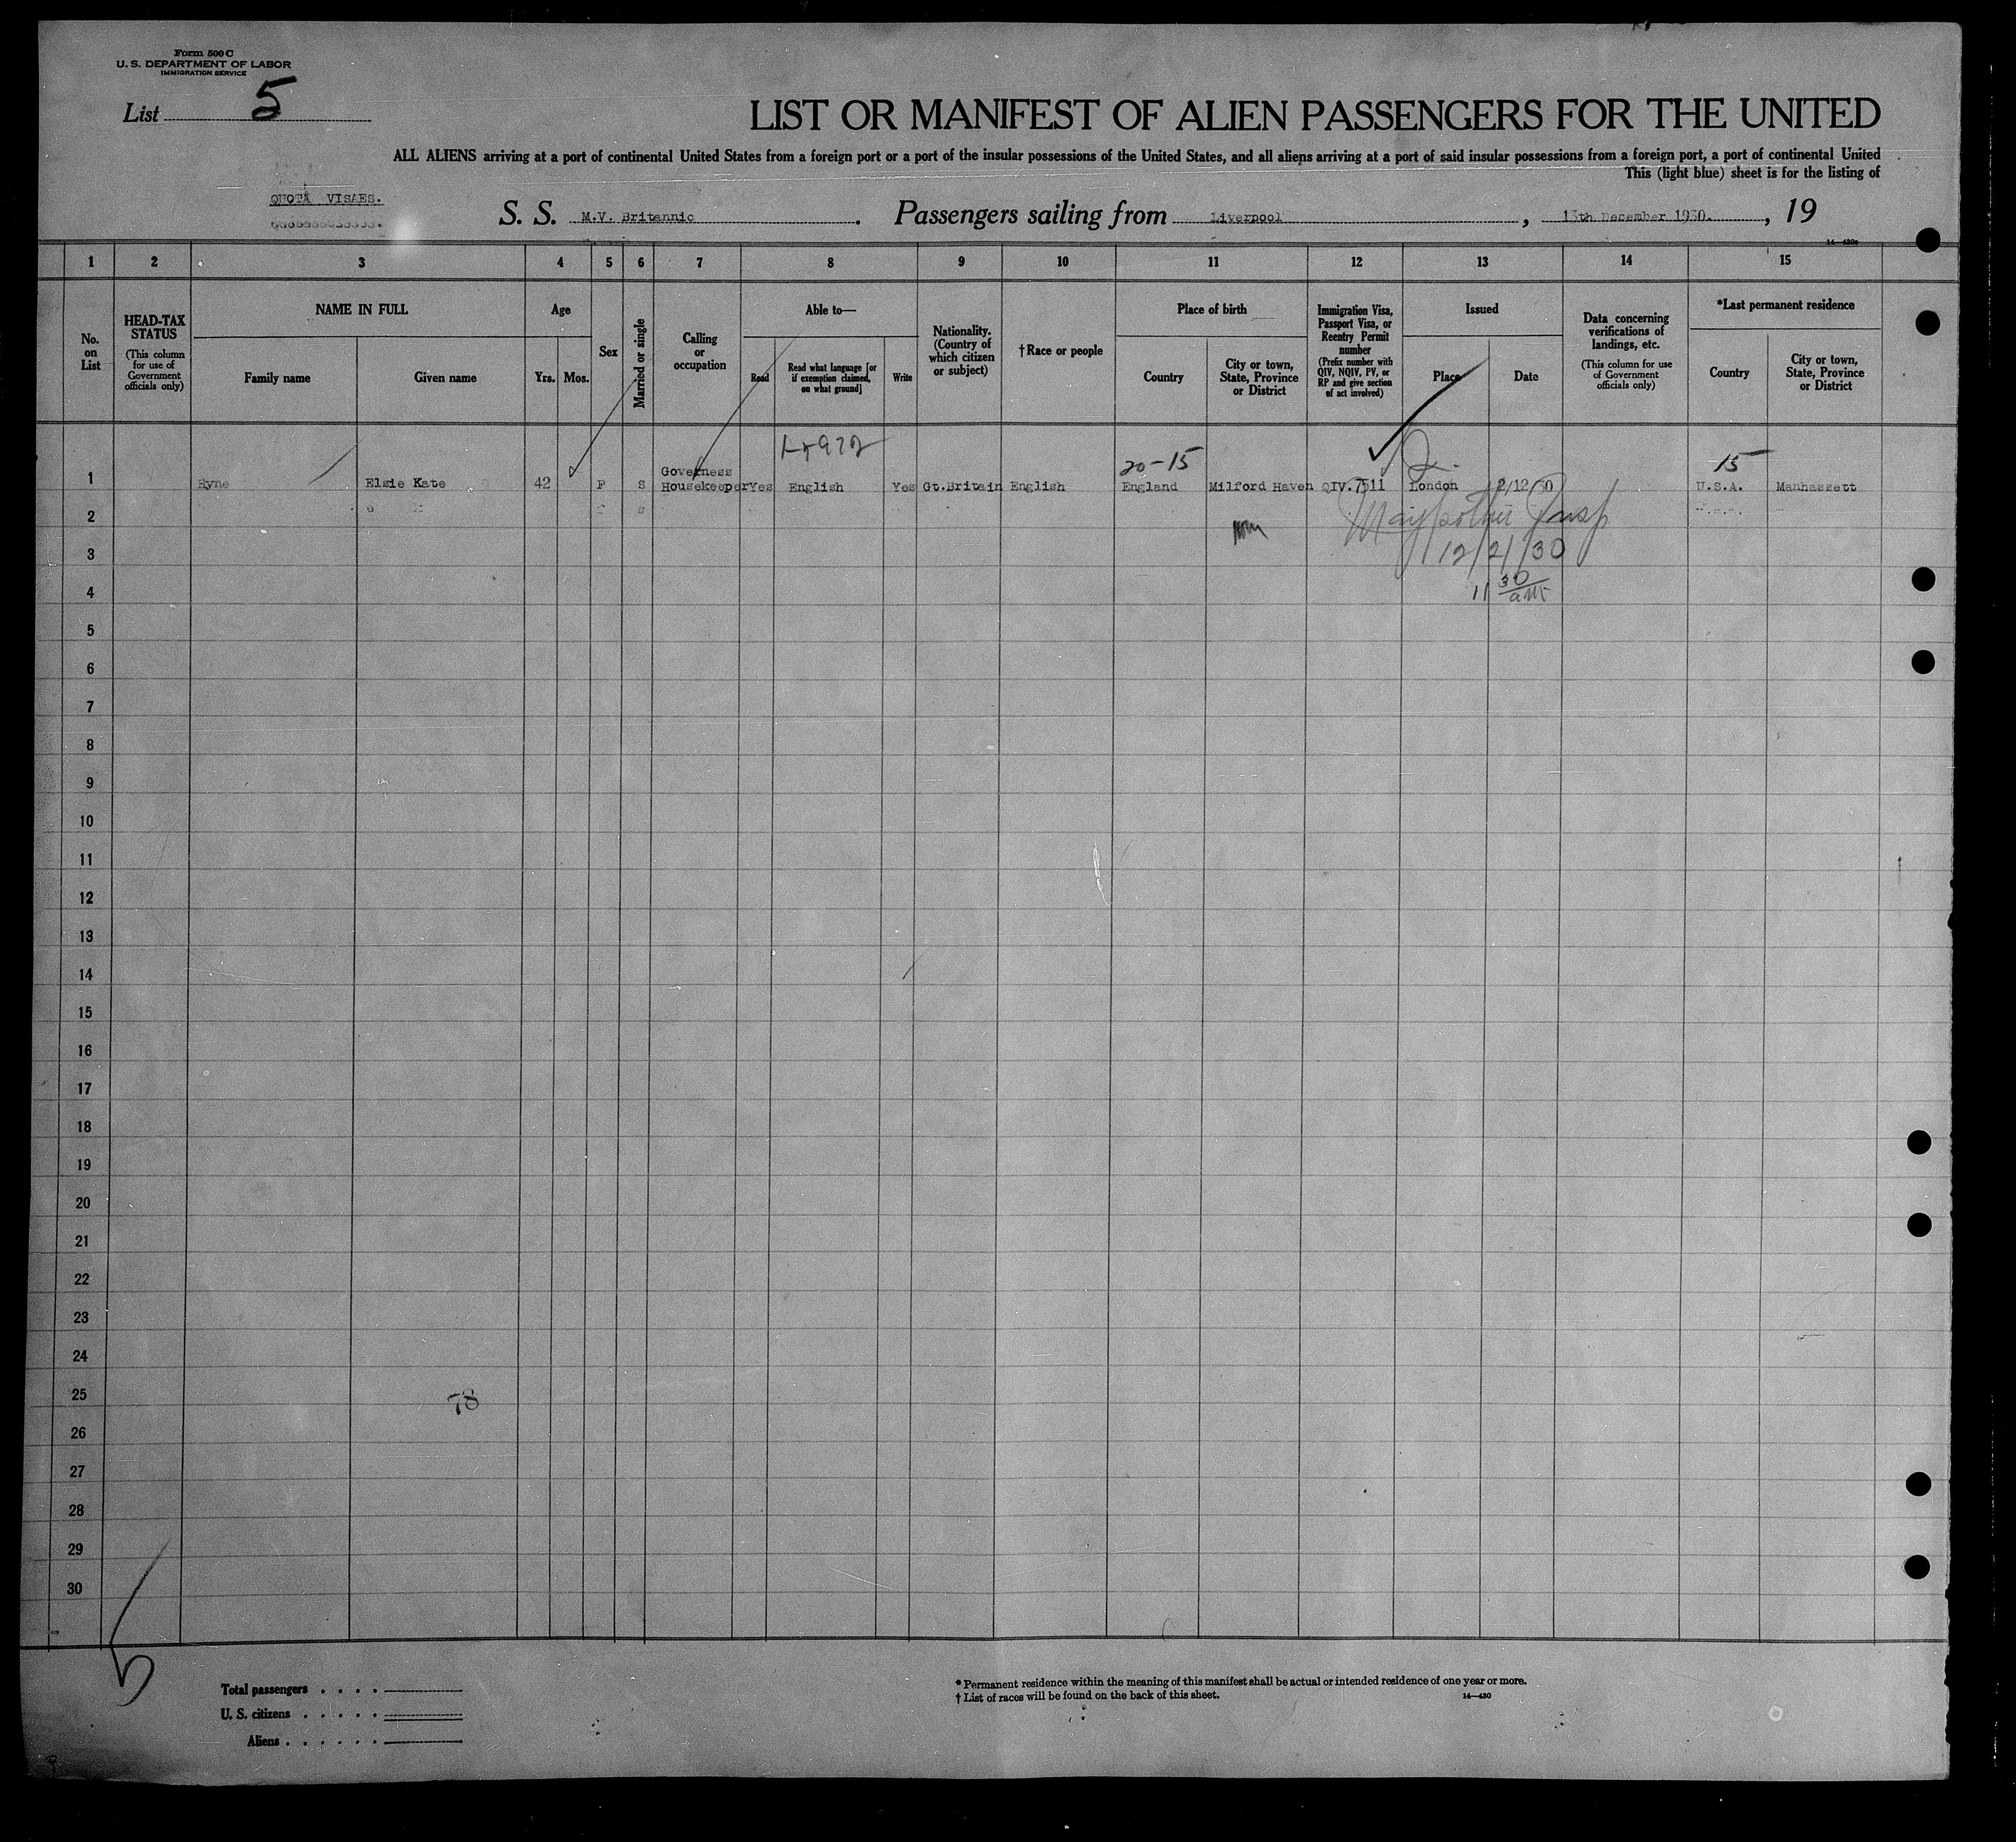 Form 500 C
U. S. DEPARTMENT OF LABOR
IMMIGRATION SERVICE
List 5
LIST OR MANIFEST OF ALIEN PASSENGERS FOR THE UNITED
ALL ALIENS arriving at a port of continental United States from a foreign port or a port of the insular possessions of the United States, and all aliens arriving at a port of said insular possessions from a foreign port, a port of continental United
This (light blue) sheet is for the listing of
QUOTA VISAES.
S. S. M.V. Britannic. Passengers sailing from Liverpool, 13th December 1930., 19
1 2 3 4 5 6 7 8 9 10 11 12 13 14 15
No. on List
HEAD-TAX STATUS
(This column for use of Government officials only)
NAME IN FULL
Family name Given name
Age
Yrs. Mos.
Sex
Married or single
Calling or occupation
Able to—
Read
Read what language [or if exemption claimed, on what ground]
Write
Nationality. (Country of which citizen or subject)
†Race or people
Place of birth
Country
City or town, State, Province or District
Immigration Visa, Passport Visa, or Reentry Permit number
(Prefix number with QIV, NQIV, PV, or RP and give section of act involved)
Issued
Place Date
Data concerning verifications of landings, etc.
(This column for use of Government officials only)
*Last permanent residence
Country
City or town, State, Province or District
20-15 15
1 Hyne Elsie Kate 42 F S Governess Housekeeper Yes English Yes Gt.Britain English England Milford Haven QIV.7511 London 2/12/30 U.S.A. Manhassett
2
3 12/21/30
4 11 30 am
5
6
7
8
9
10
11
12
13
14
15
16
17
18
19
20
21
22
23
24
25 78
26
27
28
29
30
Total passengers . . . .
U. S. citizens . . . . .
Aliens . . . . . .
* Permanent residence within the meaning of this manifest shall be actual or intended residence of one year or more.
† List of races will be found on the back of this sheet. 14—430